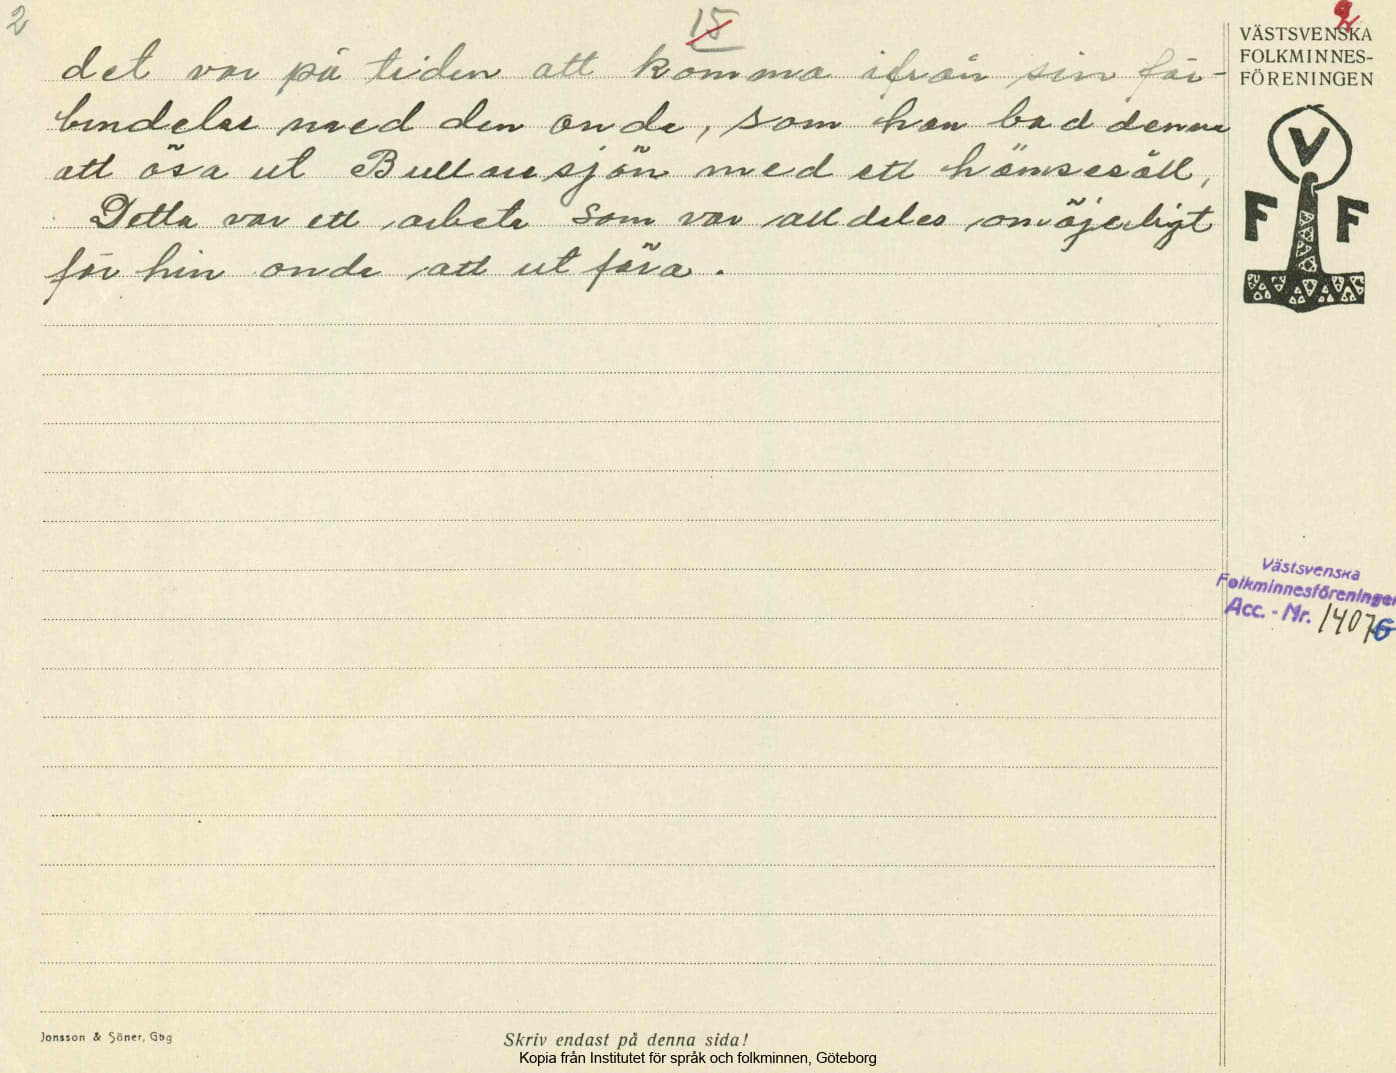 2
15
2
VÄSTSVENSKA
FOLKMINNES-
FÖRENINGEN
V
F F
det var på tiden att komma ifrån sin för-
bindelse med den onde, som han bad denne
att ösa ut Bullaresjön med ett hämsesåll,
Detta var ett arbete som var alldeles omöjerligt
för hin onde att utföra.
Västsvenska
Folkminnesföreningen
Acc. - Nr. 14076
Jonsson & Söner, Gbg
Skriv endast på denna sida!
Kopia från Institutet för språk och folkminnen, Göteborg